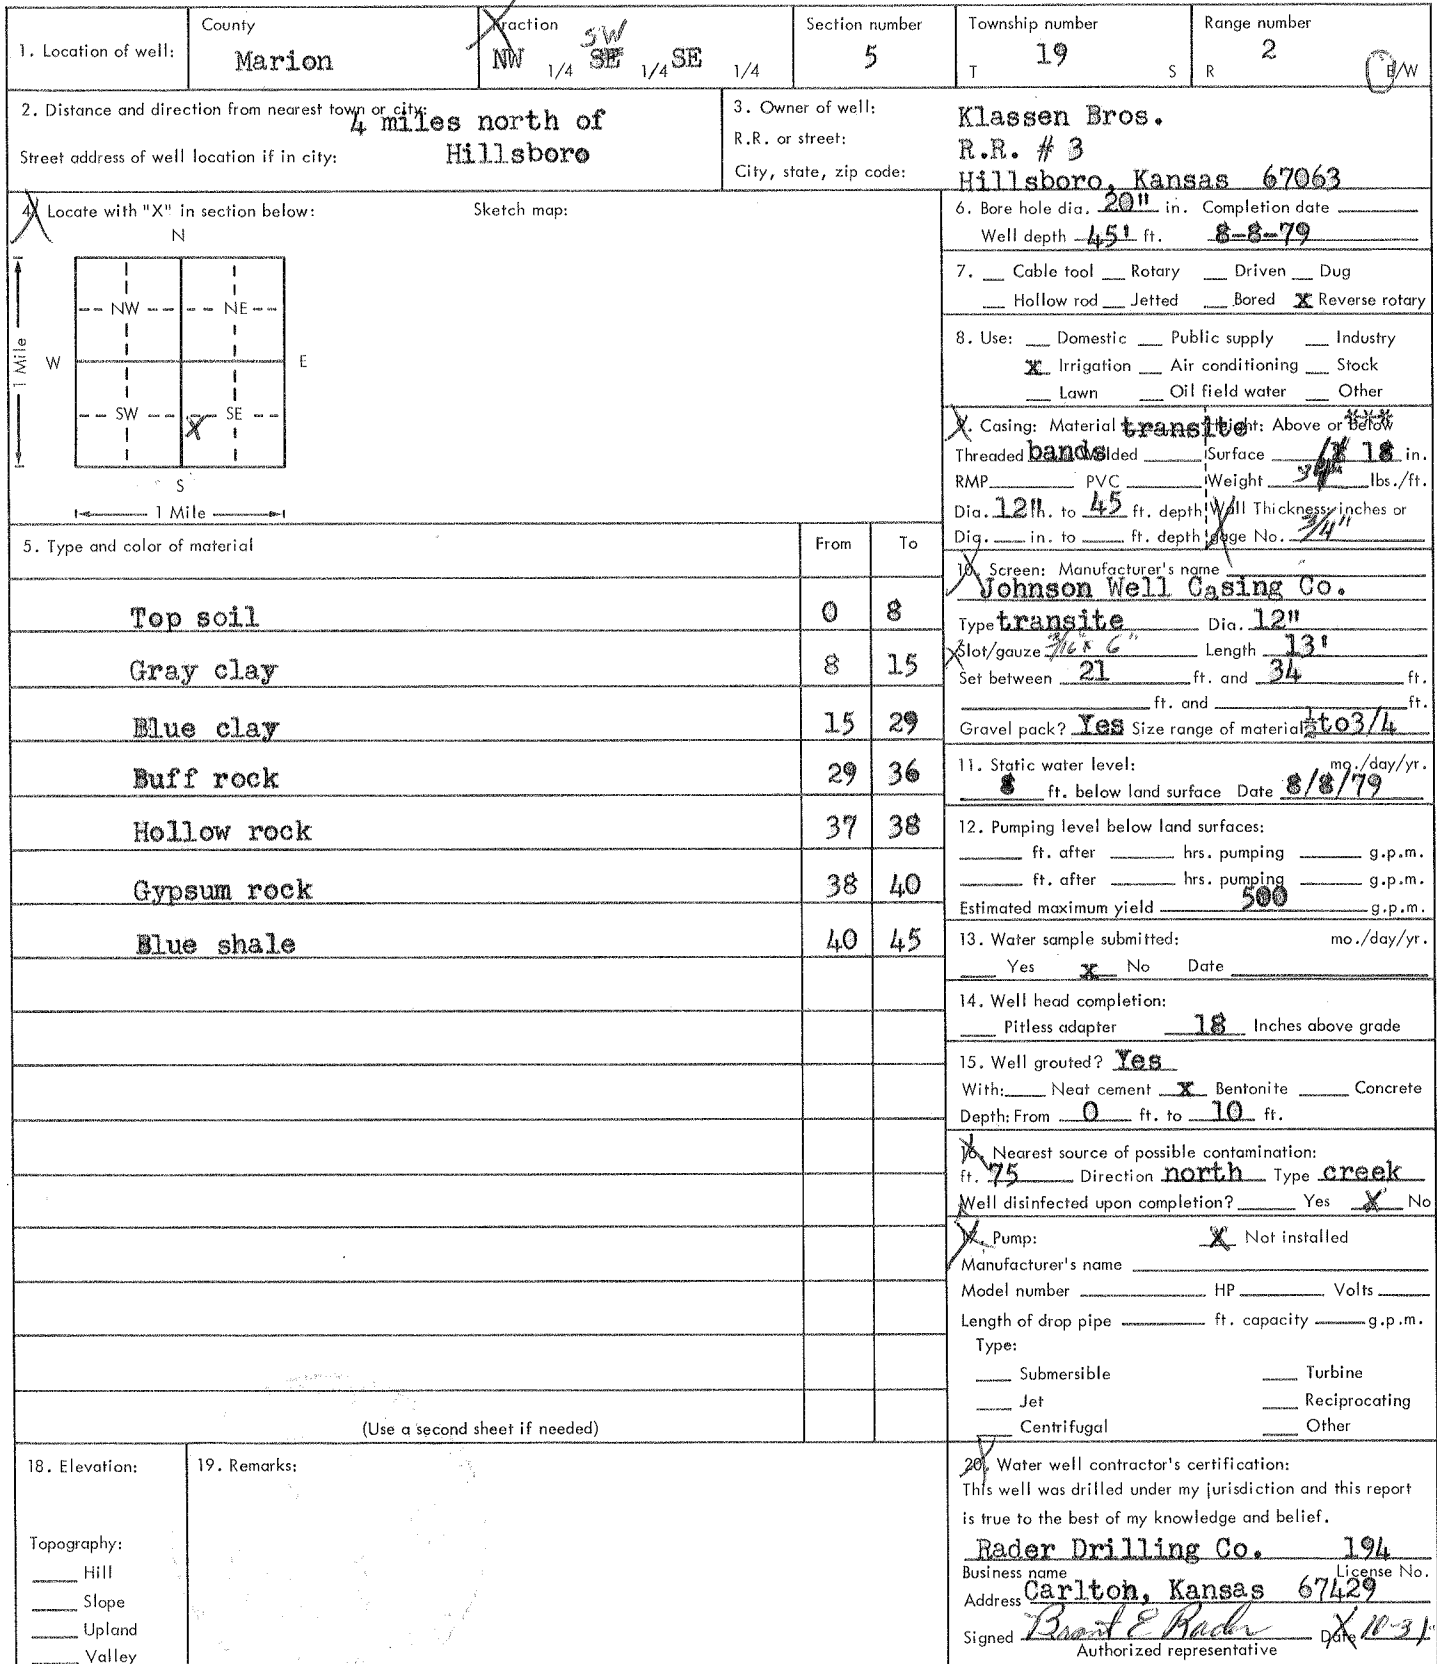 1. Location of well:
County
Marion
Fraction
NW 1/4 SW SE 1/4 SE 1/4
Section number
5
Township number
T 19 S
Range number
R 2 E/W
2. Distance and direction from nearest town or city:
4 miles north of
Street address of well location if in city:
Hillsboro
3. Owner of well:
R.R. or street:
City, state, zip code:
Klassen Bros.
R.R. # 3
Hillsboro, Kansas 67063
4. Locate with "X" in section below:
Sketch map:
N
NW NE
W E
1 Mile
SW SE
X
S
1 Mile
5. Type and color of material From To
Top soil 0 8
Gray clay 8 15
Blue clay 15 29
Buff rock 29 36
Hollow rock 37 38
Gypsum rock 38 40
Blue shale 40 45
(Use a second sheet if needed)
6. Bore hole dia. 20" in. Completion date
Well depth 45' ft. 8-8-79
7. Cable tool Rotary Driven Dug
Hollow rod Jetted Bored X Reverse rotary
8. Use: Domestic Public supply Industry
X Irrigation Air conditioning Stock
Lawn Oil field water Other
9. Casing: Material transite Height: Above or below
Threaded bands Welded Surface 18 in.
RMP PVC Weight lbs./ft.
Dia. 12" in. to 45 ft. depth Wall Thickness: inches or
Dia. in. to ft. depth gage No. 3/4"
10. Screen: Manufacturer's name
Johnson Well Casing Co.
Type transite Dia. 12"
Slot/gauze 3/16" x 6" Length 13'
Set between 21 ft. and 34 ft.
ft. and ft.
Gravel pack? Yes Size range of material ½to3/4
11. Static water level: mo./day/yr.
8 ft. below land surface Date 8/8/79
12. Pumping level below land surfaces:
ft. after hrs. pumping g.p.m.
ft. after hrs. pumping g.p.m.
Estimated maximum yield 500 g.p.m.
13. Water sample submitted: mo./day/yr.
Yes X No Date
14. Well head completion:
Pitless adapter 18 Inches above grade
15. Well grouted? Yes
With: Neat cement X Bentonite Concrete
Depth: From 0 ft. to 10 ft.
16. Nearest source of possible contamination:
ft. 75 Direction north Type creek
Well disinfected upon completion? Yes X No
17. Pump: X Not installed
Manufacturer's name
Model number HP Volts
Length of drop pipe ft. capacity g.p.m.
Type:
Submersible Turbine
Jet Reciprocating
Centrifugal Other
18. Elevation:
Topography:
Hill
Slope
Upland
Valley
19. Remarks:
20. Water well contractor's certification:
This well was drilled under my jurisdiction and this report
is true to the best of my knowledge and belief.
Rader Drilling Co. 194
Business name License No.
Address Carlton, Kansas 67429
Signed Brant E Rader Date 10-31
Authorized representative